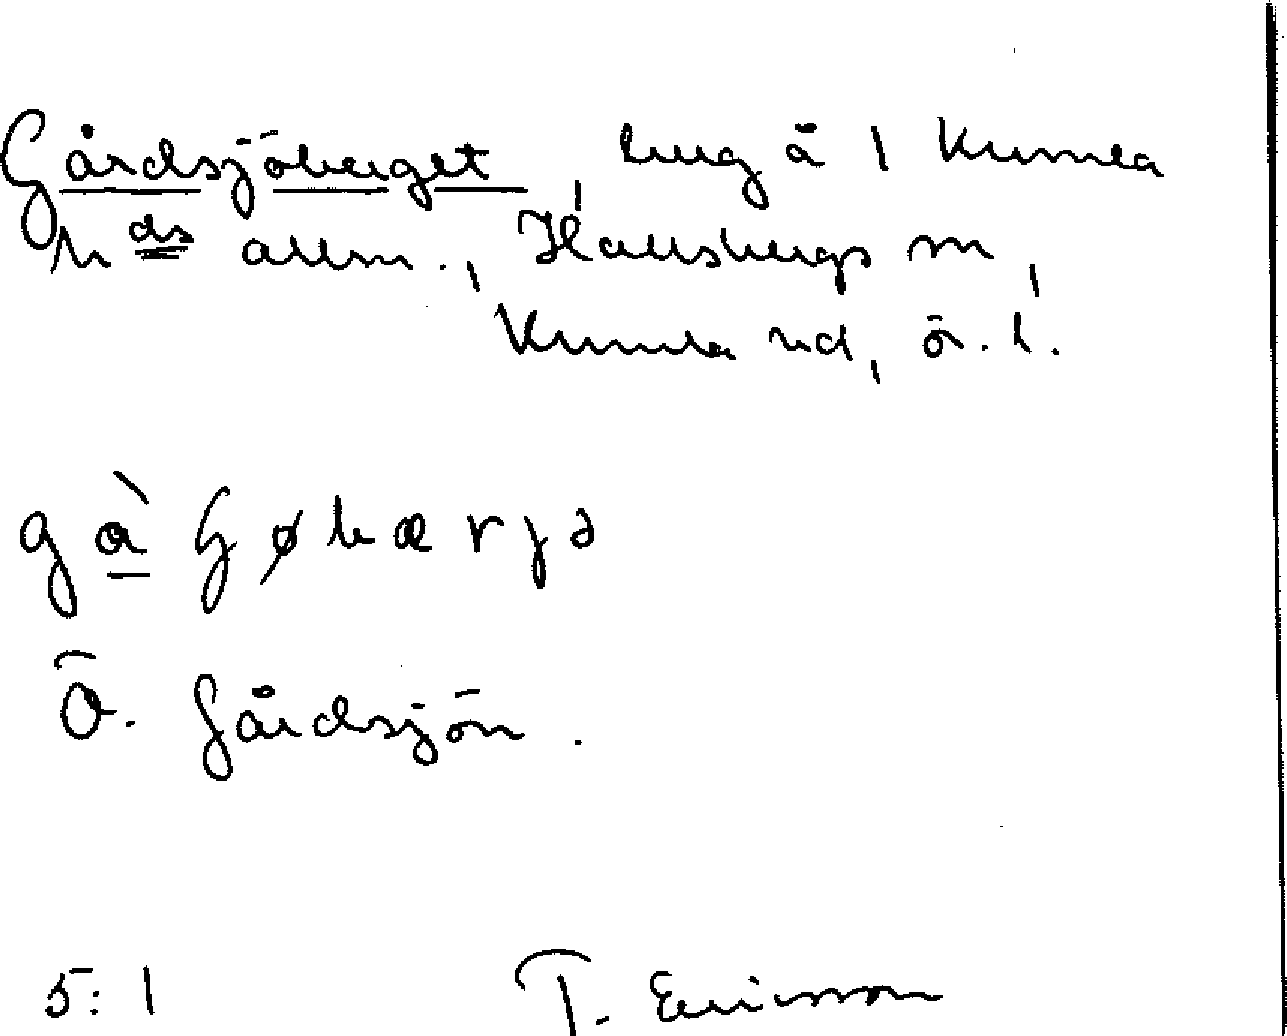 Gårdsjöberget berg å 1 Kumla
hds allm., Hallsbergs sn,
Kumla hd, ö. l.
gàɧøbærjə
Ö. Gårdsjön.
5:1 T. Ericsson